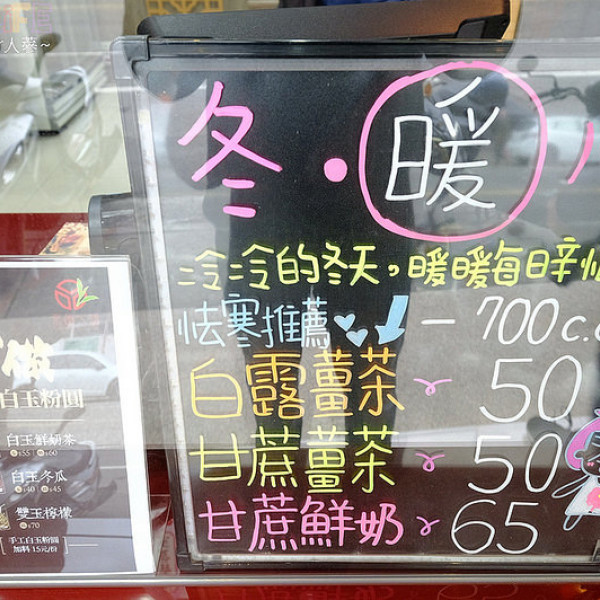 人蔘~
冬·暖
冷冷的冬天,暖暖每日辛
怯寒推薦 - 700c.c
白露薑茶 50
甘蔗薑茶 50
甘蔗鮮奶 65
白玉粉圓
白玉鮮奶茶
55 60
白玉冬瓜
40 45
雙玉檸檬
70
手工白玉粉圓
加料 15元/份